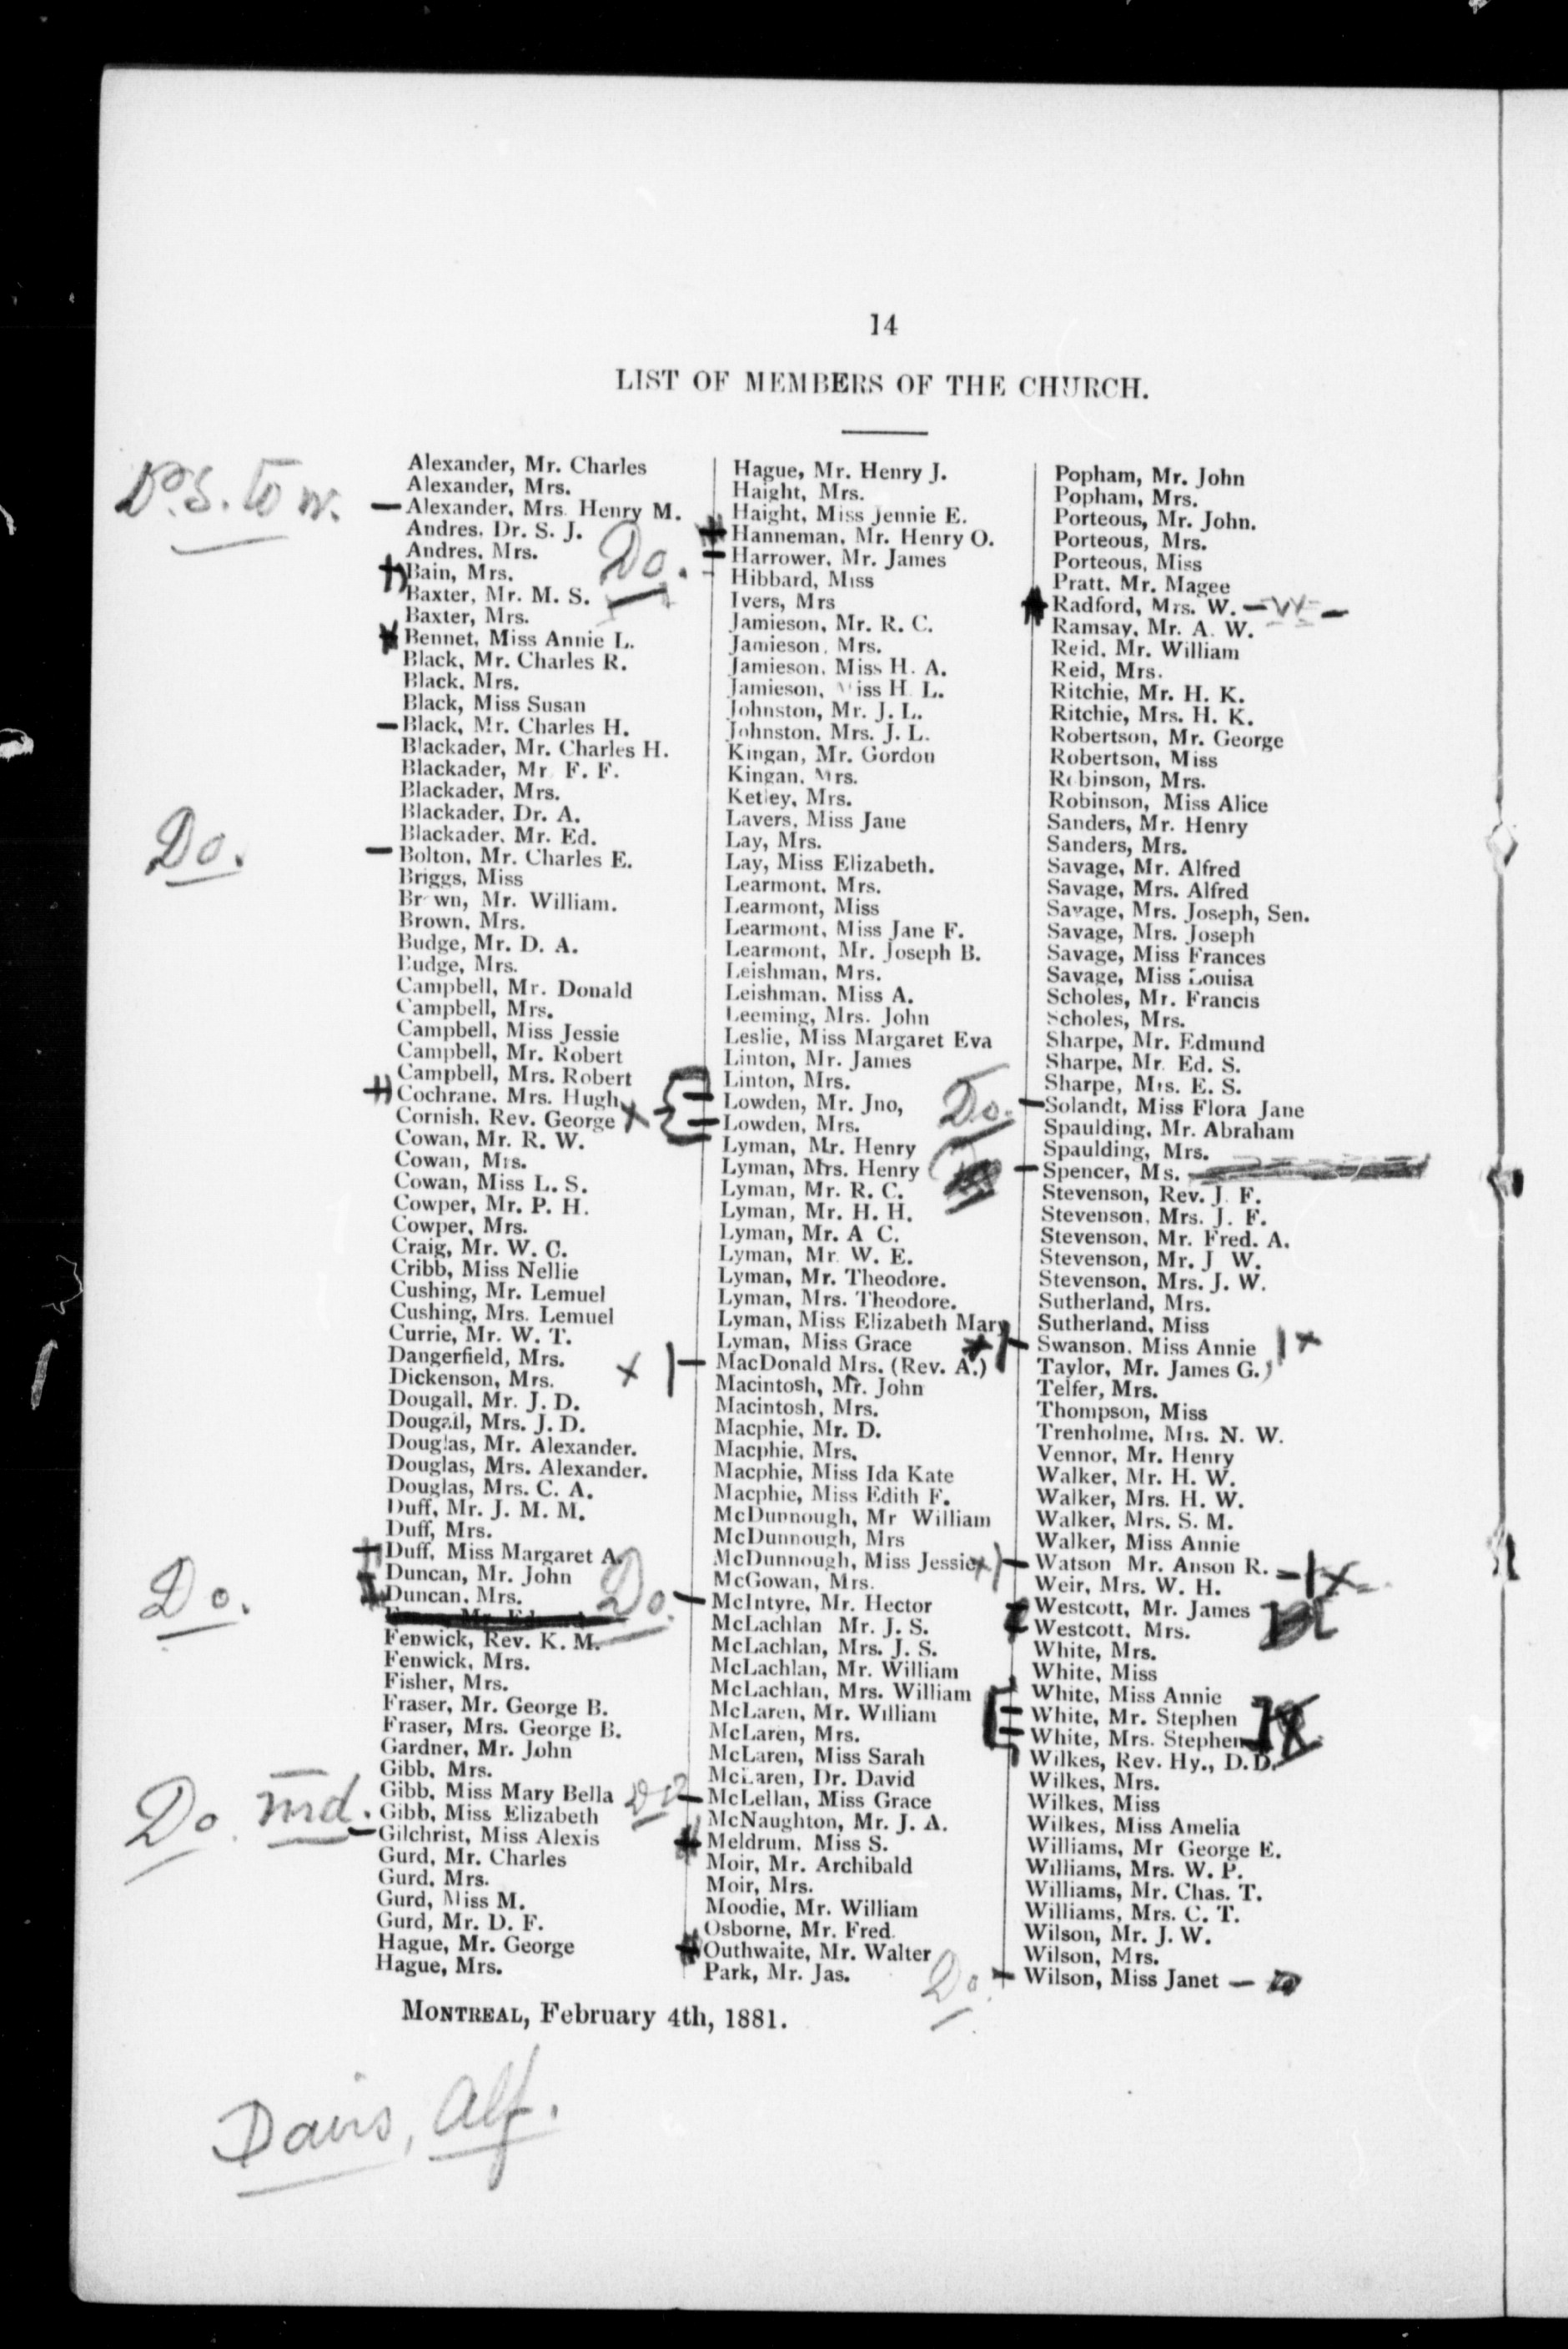 14
LIST OF MEMBERS OF THE CHURCH.
Alexander, Mr. Charles
Alexander, Mrs.
Alexander, Mrs. Henry M.
Andres, Dr. S. J.
Andres, Mrs.
Bain, Mrs.
Baxter, Mr. M. S.
Baxter, Mrs.
Bennet, Miss Annie L.
Black, Mr. Charles R.
Black, Mrs.
Black, Miss Susan
Black, Mr. Charles H.
Blackader, Mr. Charles H.
Blackader, Mr F. F.
Blackader, Mrs.
Blackader, Dr. A.
Blackader, Mr. Ed.
Do.
Bolton, Mr. Charles E.
Briggs, Miss
Br wn, Mr. William.
Brown, Mrs.
Budge, Mr. D. A.
Budge, Mrs.
Campbell, Mr. Donald
Campbell, Mrs.
Campbell, Miss Jessie
Campbell, Mr. Robert
Campbell, Mrs. Robert
Cochrane, Mrs. Hugh
Cornish, Rev. George
Cowan, Mr. R. W.
Cowan, Mrs.
Cowan, Miss L. S.
Cowper, Mr. P. H.
Cowper, Mrs.
Craig, Mr. W. C.
Cribb, Miss Nellie
Cushing, Mr. Lemuel
Cushing, Mrs. Lemuel
Currie, Mr. W. T.
Dangerfield, Mrs.
Dickenson, Mrs.
Dougall, Mr. J. D.
Dougall, Mrs. J. D.
Douglas, Mr. Alexander.
Douglas, Mrs. Alexander.
Douglas, Mrs. C. A.
Duff, Mr. J. M. M.
Duff, Mrs.
Duff, Miss Margaret A.
Duncan, Mr. John
Do.
Duncan, Mrs.
Fenwick, Rev. K. M.
Fenwick, Mrs.
Fisher, Mrs.
Fraser, Mr. George B.
Fraser, Mrs. George B.
Gardner, Mr. John
Gibb, Mrs.
Gibb, Miss Mary Bella
Gibb, Miss Elizabeth
Do. md.
Gilchrist, Miss Alexis
Gurd, Mr. Charles
Gurd, Mrs.
Gurd, Miss M.
Gurd, Mr. D. F.
Hague, Mr. George
Hague, Mrs.
Hague, Mr. Henry J.
Haight, Mrs.
Haight, Miss Jennie E.
Hanneman, Mr. Henry O.
Harrower, Mr. James
Do.
Hibbard, Miss
Ivers, Mrs
Jamieson, Mr. R. C.
Jamieson, Mrs.
Jamieson, Miss H. A.
Jamieson, Miss H. L.
Johnston, Mr. J. L.
Johnston, Mrs. J. L.
Kingan, Mr. Gordon
Kingan, Mrs.
Ketley, Mrs.
Lavers, Miss Jane
Lay, Mrs.
Lay, Miss Elizabeth.
Learmont, Mrs.
Learmont, Miss
Learmont, Miss Jane F.
Learmont, Mr. Joseph B.
Leishman, Mrs.
Leishman, Miss A.
Leeming, Mrs. John
Leslie, Miss Margaret Eva
Linton, Mr. James
Linton, Mrs.
Lowden, Mr. Jno,
Lowden, Mrs.
Lyman, Mr. Henry
Lyman, Mrs. Henry
Lyman, Mr. R. C.
Lyman, Mr. H. H.
Lyman, Mr. A C.
Lyman, Mr. W. E.
Lyman, Mr. Theodore.
Lyman, Mrs. Theodore.
Lyman, Miss Elizabeth Mary
Lyman, Miss Grace
MacDonald Mrs. (Rev. A.)
Macintosh, Mr. John
Macintosh, Mrs.
Macphie, Mr. D.
Macphie, Mrs.
Macphie, Miss Ida Kate
Macphie, Miss Edith F.
McDunnough, Mr William
McDunnough, Mrs
McDunnough, Miss Jessie
McGowan, Mrs.
Do.
McIntyre, Mr. Hector
McLachlan Mr. J. S.
McLachlan, Mrs. J. S.
McLachlan, Mr. William
McLachlan, Mrs. William
McLaren, Mr. William
McLaren, Mrs.
McLaren, Miss Sarah
McLaren, Dr. David
Do
McLellan, Miss Grace
McNaughton, Mr. J. A.
Meldrum, Miss S.
Moir, Mr. Archibald
Moir, Mrs.
Moodie, Mr. William
Osborne, Mr. Fred.
Outhwaite, Mr. Walter
Park, Mr. Jas.
Popham, Mr. John
Popham, Mrs.
Porteous, Mr. John.
Porteous, Mrs.
Porteous, Miss
Pratt, Mr. Magee
Radford, Mrs. W.
Ramsay, Mr. A. W.
Reid, Mr. William
Reid, Mrs.
Ritchie, Mr. H. K.
Ritchie, Mrs. H. K.
Robertson, Mr. George
Robertson, Miss
Robinson, Mrs.
Robinson, Miss Alice
Sanders, Mr. Henry
Sanders, Mrs.
Savage, Mr. Alfred
Savage, Mrs. Alfred
Savage, Mrs. Joseph, Sen.
Savage, Mrs. Joseph
Savage, Miss Frances
Savage, Miss Louisa
Scholes, Mr. Francis
Scholes, Mrs.
Sharpe, Mr. Edmund
Sharpe, Mr. Ed. S.
Sharpe, Mrs. E. S.
Do.
Solandt, Miss Flora Jane
Spaulding, Mr. Abraham
Spaulding, Mrs.
Spencer, Ms.
Stevenson, Rev. J. F.
Stevenson, Mrs. J. F.
Stevenson, Mr. Fred. A.
Stevenson, Mr. J W.
Stevenson, Mrs. J. W.
Sutherland, Mrs.
Sutherland, Miss
Swanson, Miss Annie
Taylor, Mr. James G.
Telfer, Mrs.
Thompson, Miss
Trenholme, Mrs. N. W.
Vennor, Mr. Henry
Walker, Mr. H. W.
Walker, Mrs. H. W.
Walker, Mrs. S. M.
Walker, Miss Annie
Watson Mr. Anson R.
Weir, Mrs. W. H.
Westcott, Mr. James
Westcott, Mrs.
White, Mrs.
White, Miss
White, Miss Annie
White, Mr. Stephen
White, Mrs. Stephen
Wilkes, Rev. Hy., D.D.
Wilkes, Mrs.
Wilkes, Miss
Wilkes, Miss Amelia
Williams, Mr George E.
Williams, Mrs. W. P.
Williams, Mr. Chas. T.
Williams, Mrs. C. T.
Wilson, Mr. J. W.
Wilson, Mrs.
Do.
Wilson, Miss Janet
MONTREAL, February 4th, 1881.
Davis, Alf.